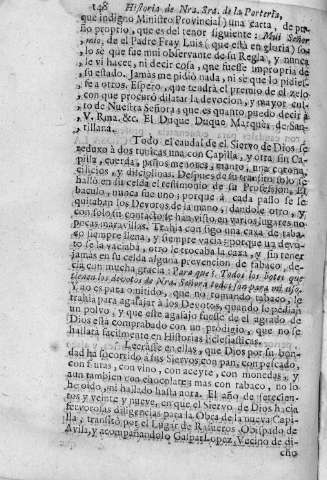 148 Historia de Nra. Sra. de la Portería,
que indigno Ministro Provincial) una carta, de pu-
ño proprio, que es del tenor siguiente: Mui Señor
mio, de el Padre Fray Luis (que está en gloria) so-
lo sè que fue mui observante de su Regla, y nunca
le vì hacer, ni decir cosa, que fuesse impropria de
su estado. Jamás me pidiò nada, ni se que la pidies-
se a otros. Espero, que tendrá el premio de el zelo
con que procuro dilatar la devocion, y mayor cul-
to de Nuestra Señora: que es quanto puedo decir à
V. Rma. &c. El Duque Duque Marquès de San-
tillana.
Todo el caudal de el Siervo de Dios se
reduxo à dos tunicas una con Capilla, y otra sin Ca-
pilla, cuerda, paños menores, manto, una corona,
cilicios, y disciplinas. Despues de su solo se
hallò en su celda el testimonio de su Profession. El
baculo, nunca fue uno; porque à cada passo se le
quitaban los Devotos de la mano, dandole otro, y
con solo su contacto se han visto en varios lugares no
pocas maravillas. Trahia con sigo una caxa de taba-
co siempre llena, y siempre vacia: porque un devo-
to se la vaciaba, otro le trocaba la caxa, y sin tener
jamás en su celda alguna prevencion de tabaco, de-
cia con mucha gracia: Para que? Todos los botes que
tienen los devotos de Nra. Señora todos son para mi uso.
Y no es para omitido, que no tomando tabaco, le
trahia para agasajar à los Devotos, quando le pedian
un polvo, y que este agasajo fuesse de el agrado de
Dios està comprobado con un prodigio, que no se
hallarà facilmente en Historias Eclesiasticas.
Leerásse en ellas, que Dios por su bon-
dad ha socorrido à sus Siervos con pan, con pescado,
con frutas, con vino, con aceyte, con monedas, y
aun tambien con chocolate; mas con tabaco, no lo
he oido, ni hallado hasta aora. El año de setecien-
tos y veinte y nueve, en que el Siervo de Dios hacia
fervorosas diligencias para la Obra de la nueva Capi-
lla, transitò por el Lugar de Rasueros, Obispado de
Avila, y acompañandolo Gaspar Lopez, Vecino de di-
cho